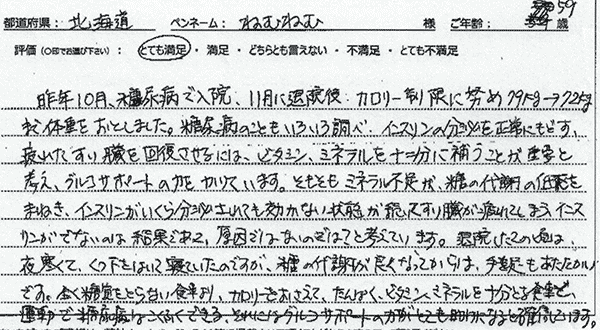 都道府県： 北海道 ペンネーム： ねむねむ 様 ご年齢： 59 歳
評価（○印でお選び下さい）： とても満足 ・ 満足 ・ どちらとも言えない ・ 不満足 ・ とても不満足
昨年10月、糖尿病で入院、11月に退院後、カロリー制限に努め79kg→72kg
まで体重をおとしました。糖尿病のこともいろいろ調べ、インスリンの分泌を正常にもどす、
疲れたすい臓を回復させるには、ビタミン、ミネラルを十二分に補うことが重要と
考え、グルコサポートの力をかりています。そもそもミネラル不足が、糖の代謝の低下を
まねき、インスリンがいくら分泌されても効かない状態が続きすい臓が疲れてしまうインス
リンがでないのは結果であって、原因ではないのではと考えています。退院したての頃は、
夜寒くて、くつ下をはいて寝ていたのですが、糖の代謝が良くなってからは、手足もあたたかい
です。全く糖質をとらない食事より、カロリーをおさえて、たんぱく、ビタミン、ミネラルを十分とる食事と、
運動で糖尿病はこくふくできる、それにはグルコサポートの力がとても助けになると確信しています。